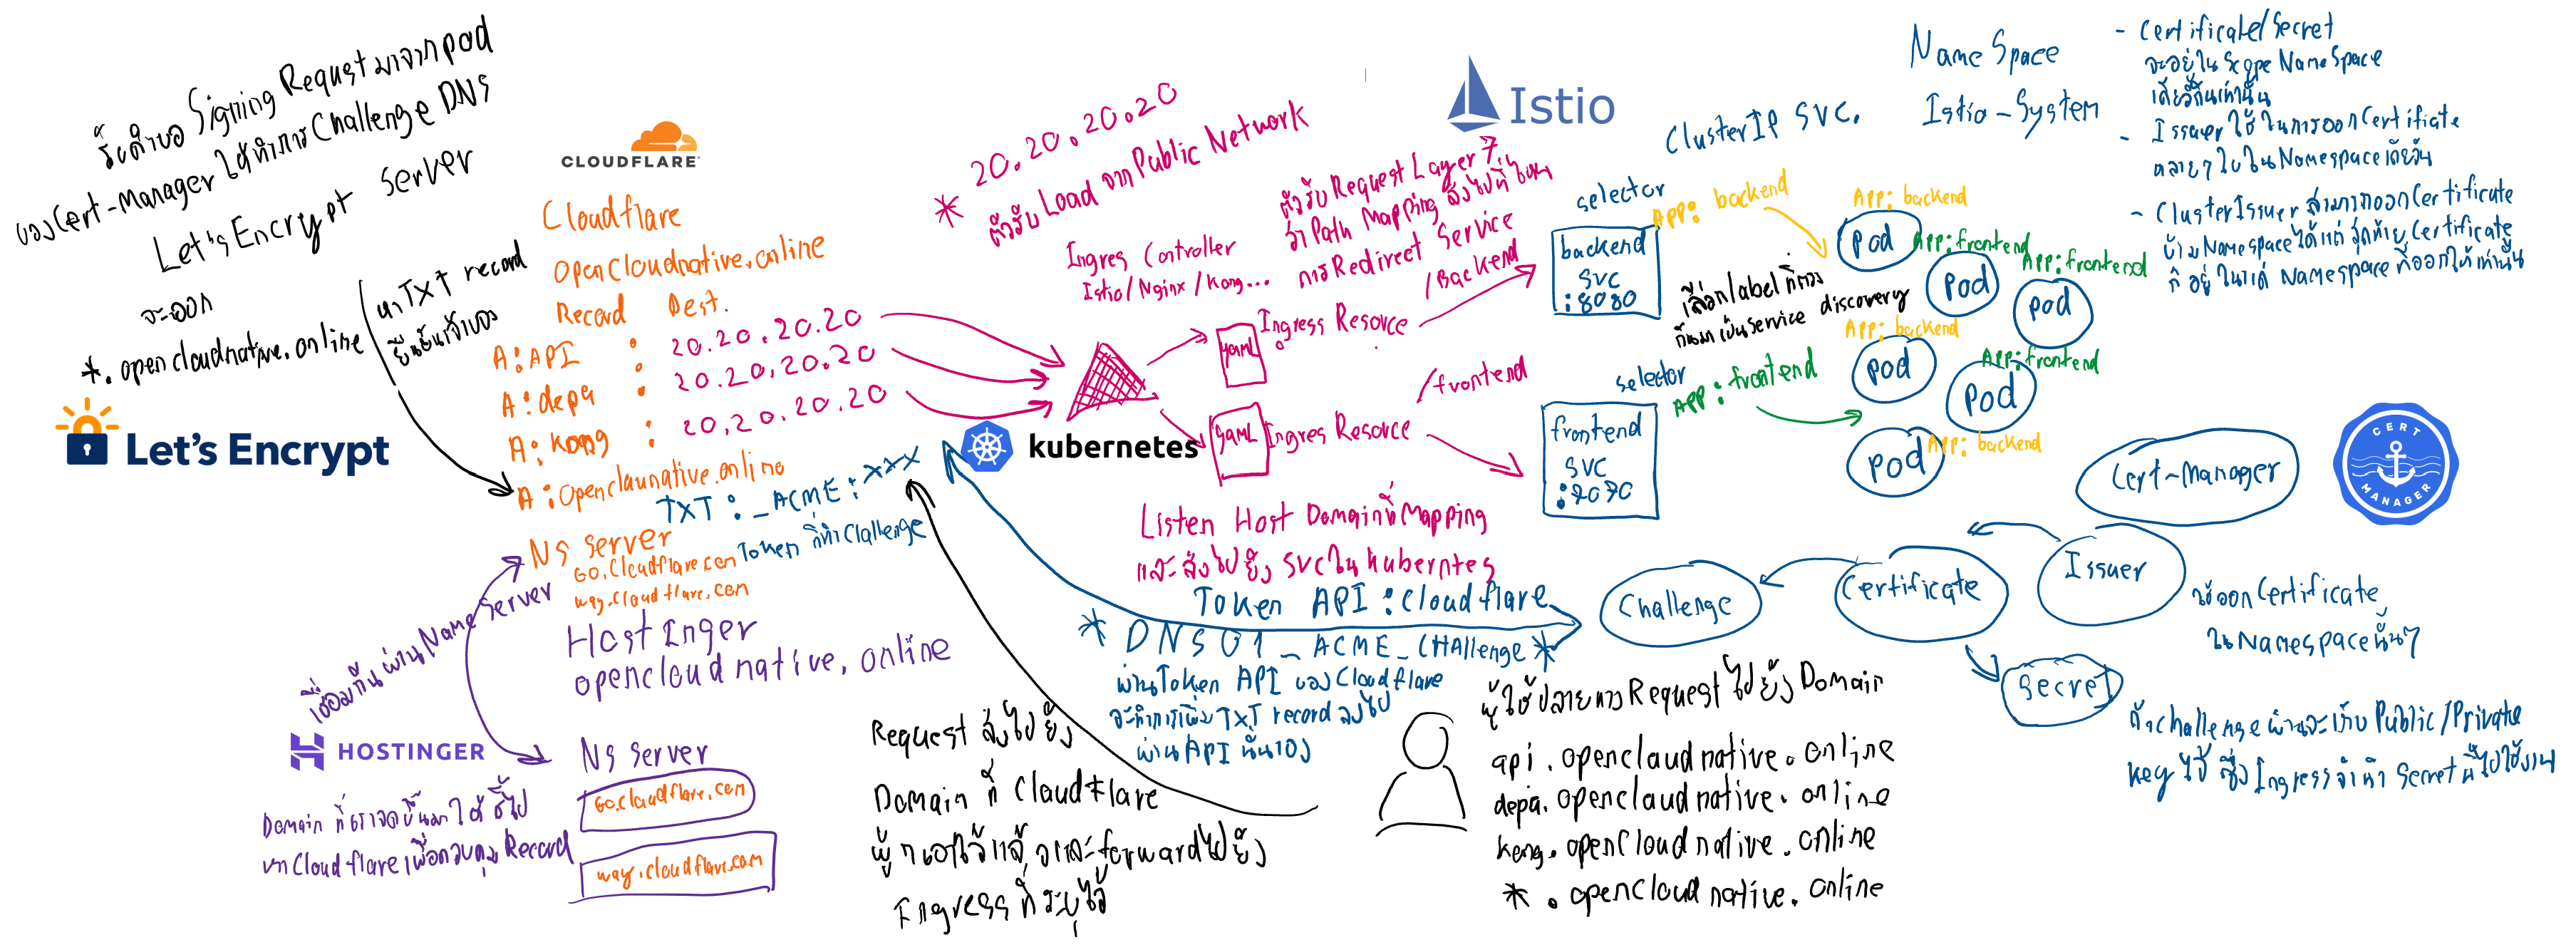 รับคำขอ Signing Request มาจาก pod
ของ Cert-Manager ให้ทำการ Challenge DNS
Let's Encrypt Server
จะออก
*. opencloudnative.online
หา TXT record
ยืนยันเจ้าของ
Let's Encrypt
CLOUDFLARE
Cloudflare
opencloudnative.online
Record Dest.
A : API : 20.20.20.20
A : depa : 20.20.20.20
A : kong : 20.20.20.20
A : openclaunative.online
TXT : _ACME : xxx
Token ที่ทำ Challenge
NS Server
Go.Cloudflare.com
way.cloudflare.com
เชื่อมกันผ่าน Name Server
HostInger
opencloudnative.online
HOSTINGER
NS Server
Go.cloudflare.com
way.cloudflare.com
Domain ที่เราจดขึ้นมาให้ชี้ไป
หา Cloudflare เพื่อควบคุม Record
* 20.20.20.20
ตัวรับ Load จาก Public Network
Ingres Controller
Istio/Nginx/Kong...
ตัวรับ Request Layer 7
ว่า Path Mapping ส่งไปที่ไหน
การ Redirect Service
/Backend
yaml
Ingress Resouce
/frontend
yaml
Ingres Resouce
kubernetes
Listen Host Domain ที่ Mapping
และส่งไปยัง SVC ใน Kuberntes
Token API : Cloudflare
* DNS01_ACME_CHAllenge *
ผ่าน Token API ของ Cloudflare
จะทำการเพิ่ม TXT record ลงไป
ผ่าน API นั่นเอง
Request ส่งไปยัง
Domain ที่ Cloudflare
forward ไปยัง
Ingress ที่ระบุไว้
ผู้ใช้ปลายทาง Request ไปยัง Domain
api.opencloudnative.online
depa.opencloudnative.online
kong.opencloudnative.online
*.opencloudnative.online
Istio
ClusterIP SVC.
selector
App: backend
backend
SVC
:8080
เลือก label ที่ตรง
กันมาเป็น service discovery
selector
App: frontend
frontend
SVC
:7070
App: backend
Pod
App: frontend
Pod
App: frontend
Pod
App: backend
Pod
App: frontend
Pod
Pod
App: backend
Name Space
Istio-System
- Certificate/Secret
จะอยู่ใน Scope NameSpace
เดียวกันเท่านั้น
- Issuer ใช้ในการออก Certifiate
หลายๆ ใบใน Namespace เดียวกัน
- ClusterIssuer สามารถออก Certificate
ข้าม Namespace ได้แต่สุดท้าย Certificate
ก็อยู่ในแต่ Namespace ที่ออกให้เท่านั้น
Cert-Manager
CERT MANAGER
Issuer
Certificate
Challenge
Secret
ใช้ออก Certificate
ใน Namespace นั้นๆ
ถ้า challenge ผ่านจะเก็บ Public/Private
key ไว้ ซึ่ง Ingress จะนำ Secret นี้ไปใช้งาน